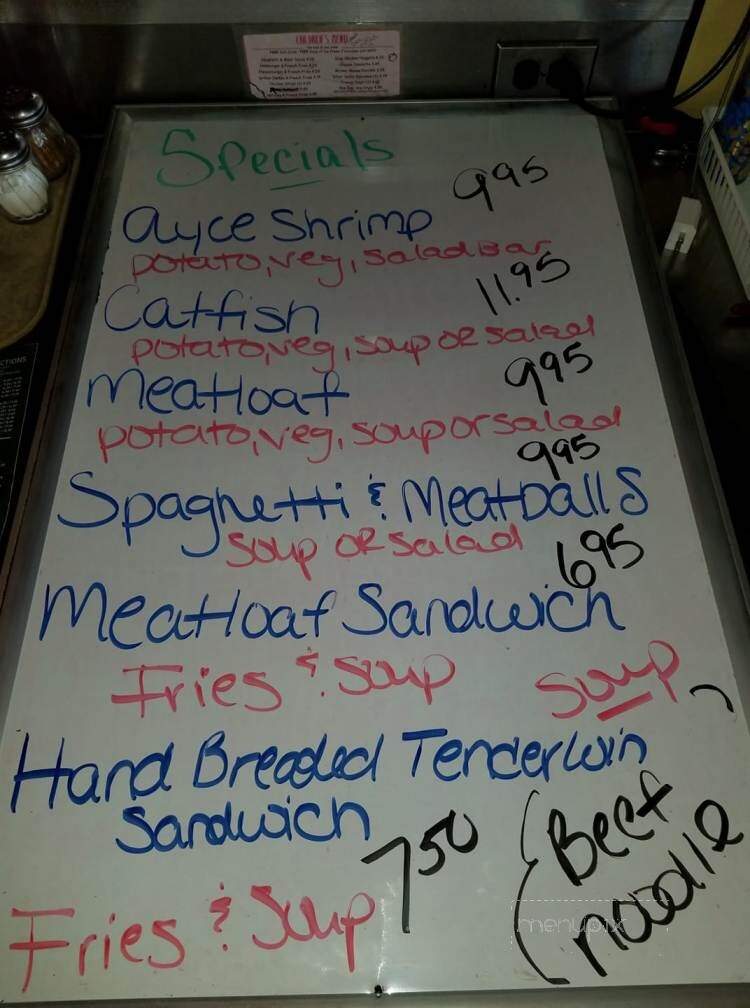 CHILDREN'S MENU
Specials
995
ayce Shrimp
potato, veg, salad Bar
11.95
Catfish
potato, veg, soup or salad
995
Meatloaf
potato, veg, soup or salad
995
Spaghetti & Meatballs
soup or salad
695
Meatloaf Sandwich
Fries & soup
Hand Breaded Tenderloin
Sandwich
750
Fries & Soup
Soup
Beef
noodle
menupix